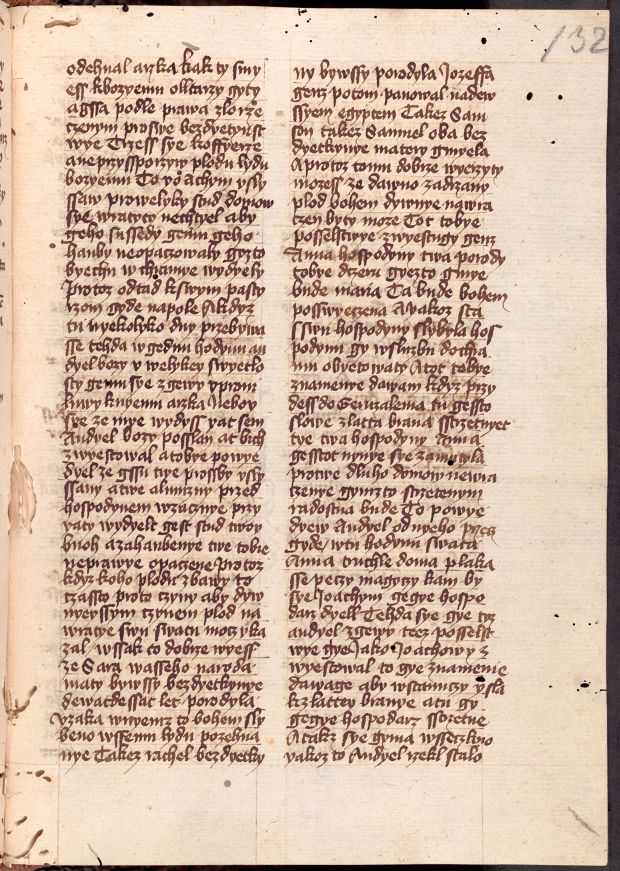 132
odehnal arzka kak ty smy
ess kbozyemu olltarzy gyty
agssa podle prawa zlorze
czenym prosiye bezdyetynst
wye Trzess sye kossyerze
aneprzyssporzyw plodu lydu
bozyemu To Joachym usly
ssaw prowelyky stud domow
sye wratyty nechtyel aby
geho sussedy gemu geho
hanby neopaczowaly gyzto
byechu w chramye wydyely
Protoz odtad kswym pasty
rzom gyde napole A kdyz
tu nyekolyko dny przebywa
sse tehda wgednu hodynu an
dyel bozy v welykey swyetlo
sty gemu sye zgewy yprom
luwy knyemu arzka Neboy
sye ze mye wydyss yat sem
Andyel bozy posslan at bich
zwyestowal atobye powye
dyel ze gssu twe prosby vsly
ssany atwe almuzny przed
hospodynem wzaczne przy
yaty wydyelt gest stud twoy
buoh azahanbenye twe tobie
neprawye opaczene protoz
kdyz koho plodu zbawy to
czassto proto czyny aby dyw
nyeyssym czynem plod na
wratye swu swatu mocz vka
zal wssak to dobrze wyess
ze Sara wasseho naroda
maty bywssy bezdyetkynye
dewatdessat let porodyla
yzaka wnyemz to bohem sly
beno wssemu lydu pozehna
nye Takez rachel bezdyetky
ny bywssy porodyla Jozeffa
genz potom panowal nadew
ssyem egyptem Takez Sam
son takez Samuel oba bez
dyetkynye matery gmyela
A protoz tomu dobrze wyerzyty
mozess ze dawno zadrzany
plod bohem dywnye nawra
czen byty moze Tot tobye
posselstwye zwyestugy genz
Anna hospodyny twa porody
tobye dczeru gyezto gmye
bude maria Ta bude bohem
posswyeczena A yakoz sta
sswu hospodyny slybyla hos
podynu gy wsluzbu docha
mu obyetowaty A tot tobye
znamenye dawam kdyz przy
dess do Geruzalema tu gessto
slowe zlatta brana sstrzetnyet
tye twa hospodyny Anna
gesstot nynye sye zamutyla
protwe dluho domow newra
czenye gymzto strzetenym
radostna bude To powye
dyew Andyel od nyeho precz
gyde wtu hodynu swata
Anna truchle doma plaka
sse peczy magyczy kam by
sye Joachym gegye hospo
darz dyell Tehda sye gye tyz
andyel zgewy tez posselst
wye gye Jako Joachowy z
wyestowal to gye znamenie
dawage aby wstanuczy ysla
kzlattey branye atu gy
gegye hospodarz sstrzetne
A takz sye gyma wsseczkno
yakoz to Andyel rzekl stalo